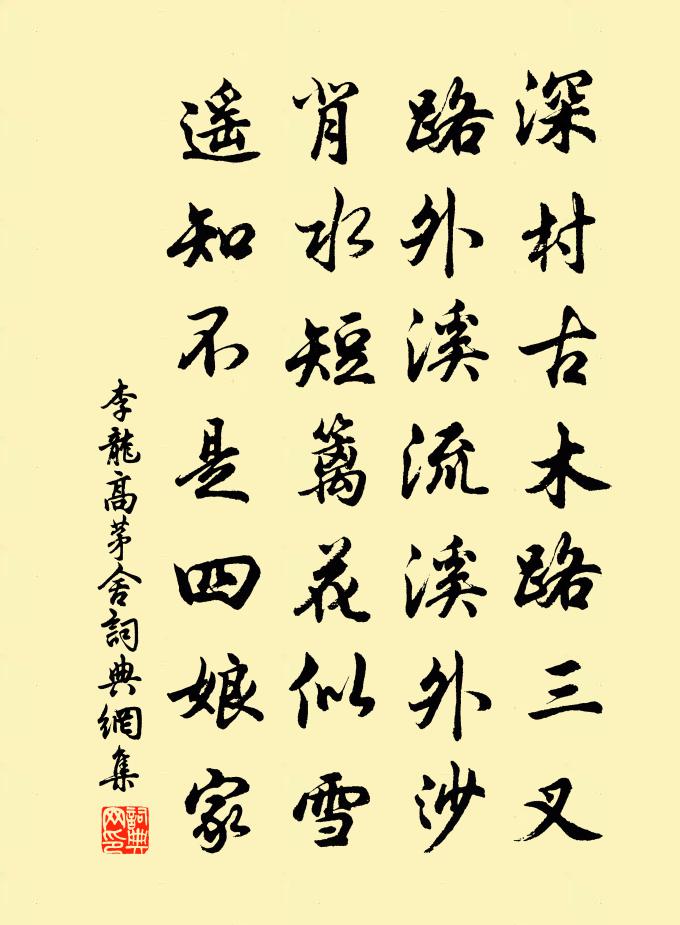 深村古木路三叉
路外溪流溪外沙
背水短籬花似雪
遥知不是四娘家
李龍高茅舍詞典網集
詞典网印